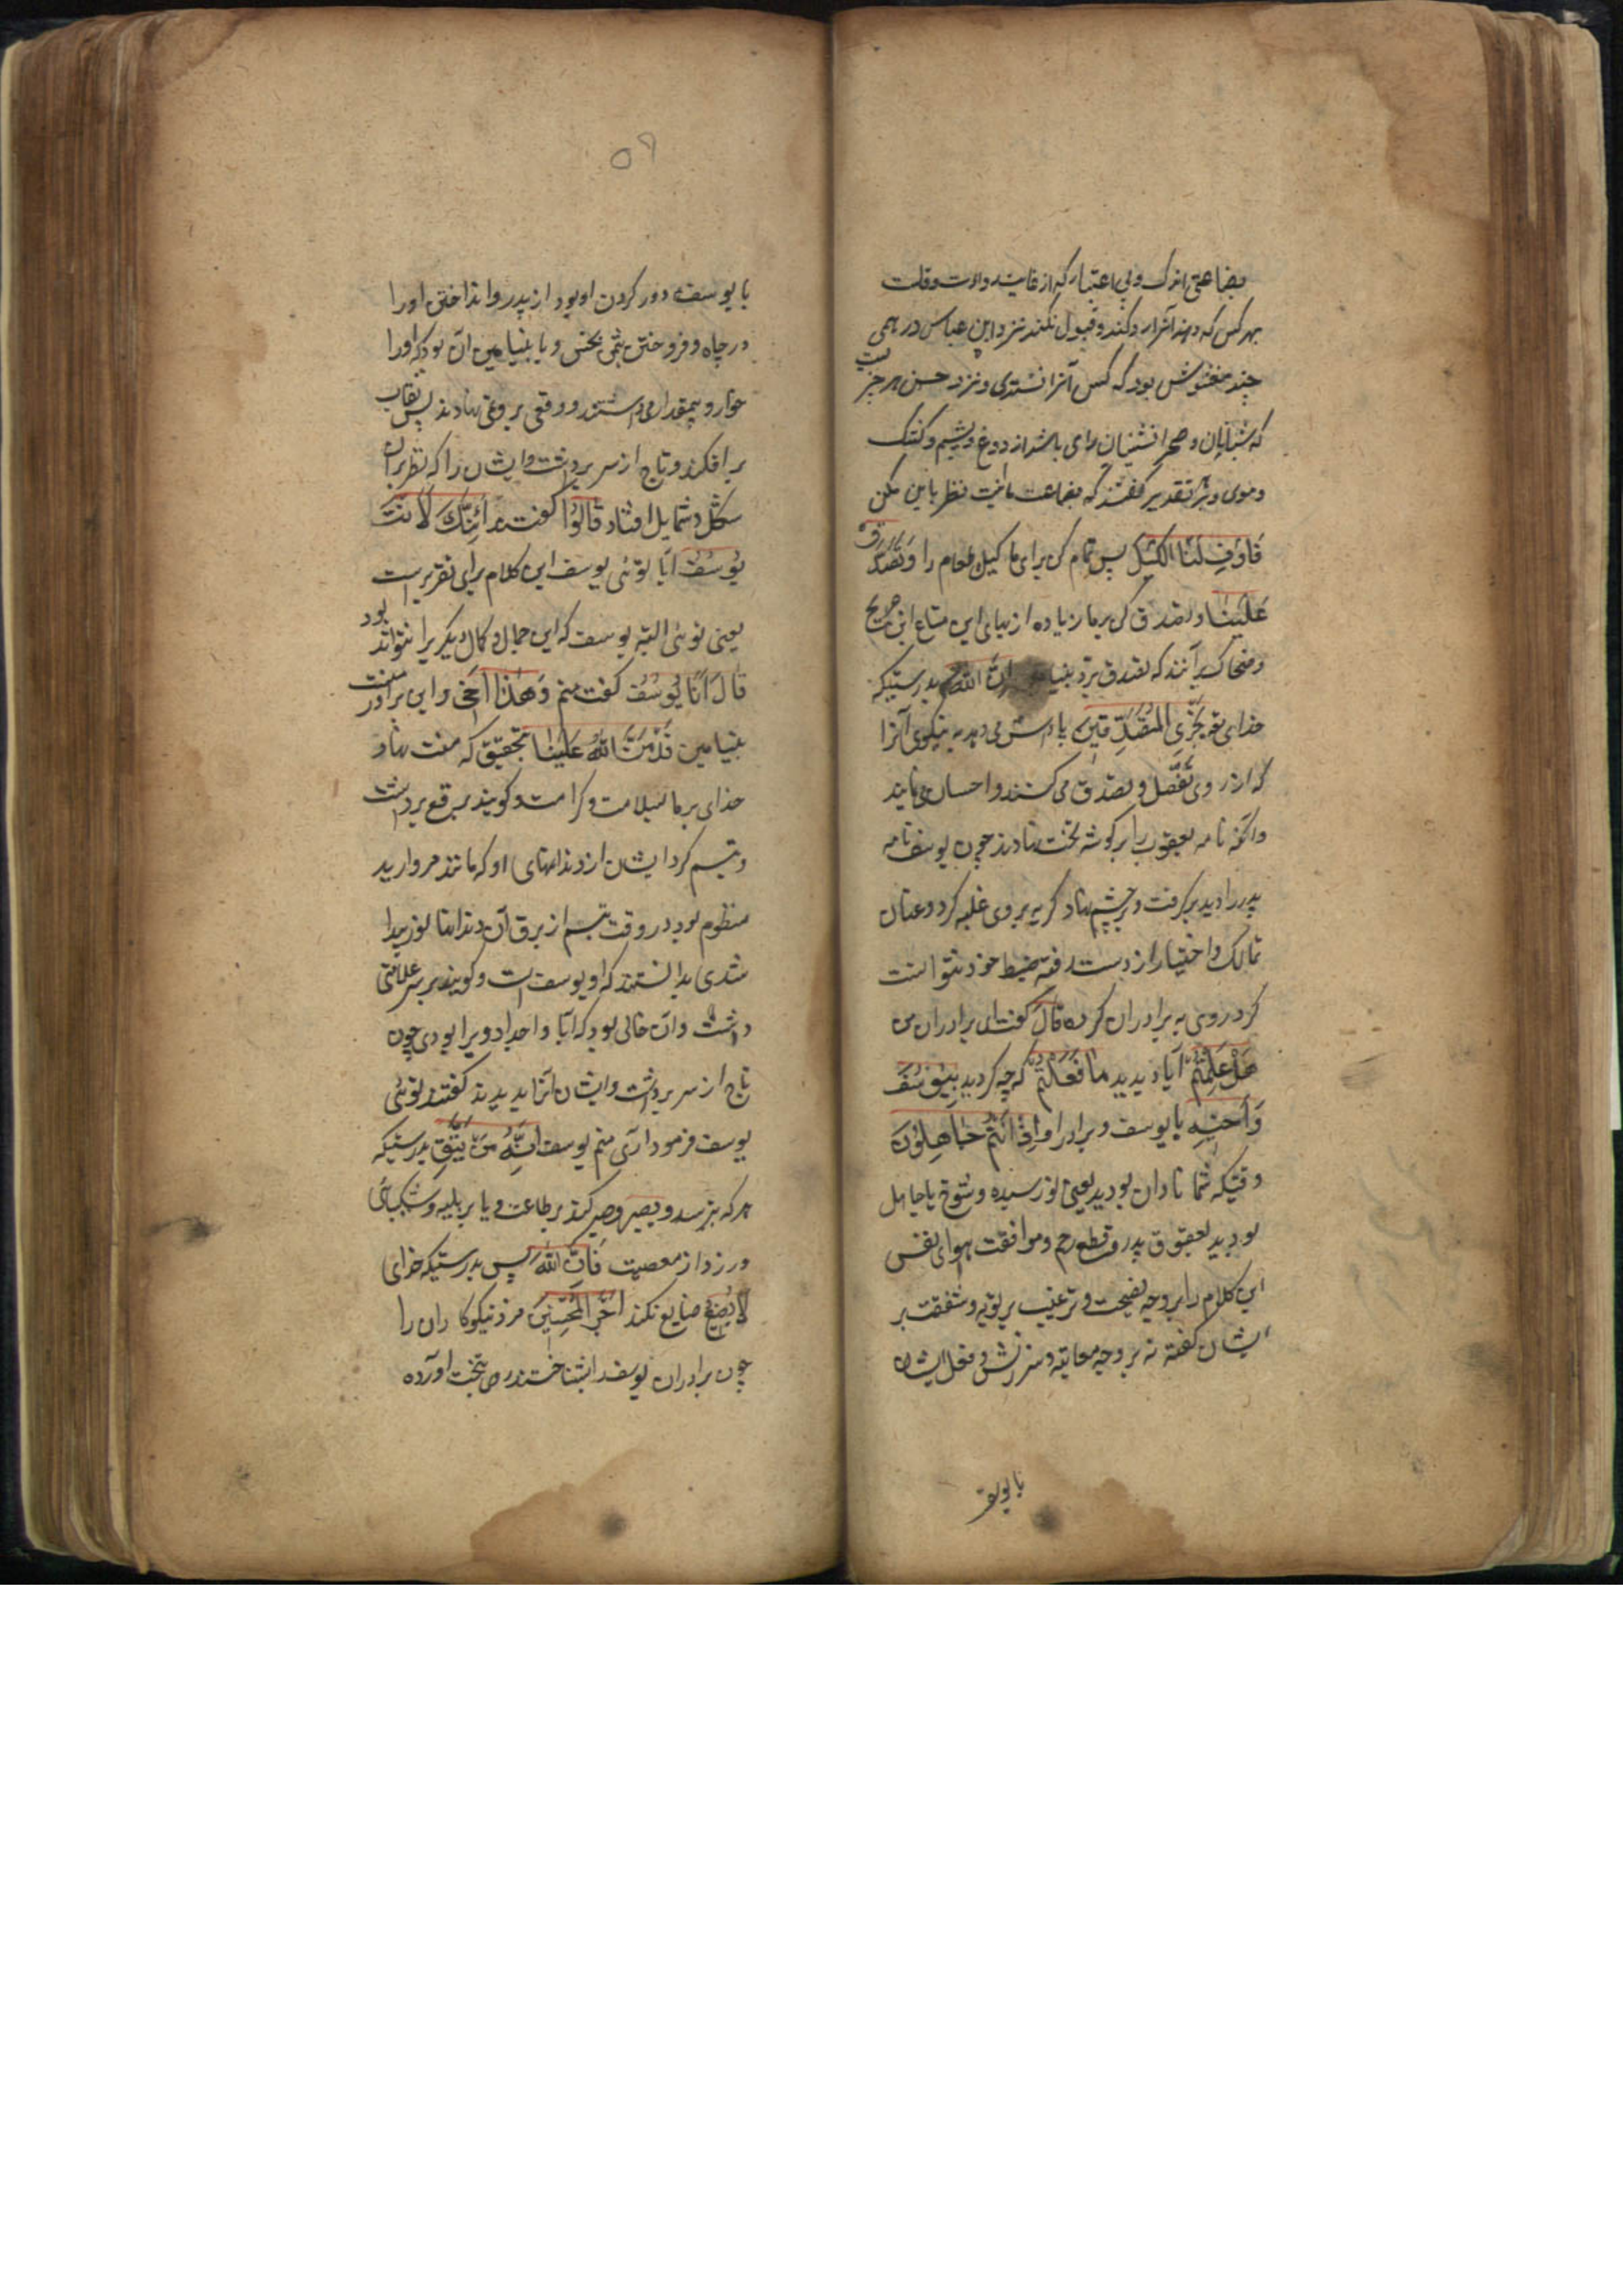 بضاعتی اندک و بی اعتبار که از غایت رداءت و قلت
بهر کس که دهند آنرا رد کند و قبول نکند نزد ابن عباس درهمی
چند مغشوش بود که کس آنرا نستدی و نزد حسن هر چیزیست
که شبانان و صحرانشینان رای باشد از دوغ و پشیم و کشک
و موی و بتقدیر گفتند که بضاعت ما نظر باین مکن
فَاَوْفِ لَنَا الْكَیْلَ پس تمام کن برای ما کیل طعام را وَتَصَدَّقْ
عَلَیْنَا و تصدق کن بر ما زیاده از بهای این متاع ابن جریح
و ضحاک بر آنند که تصدق برد بنیامین اِنَّ اللّٰهَ بدرستیکه
خدای تع یَجْزِی الْمُتَصَدِّقِینَ پاداش می دهد به نیکوی آنرا
که از روی تفضل و تصدق می کنند و احسان می نمایند
وانکه نامه یعقوب را بر گوشه تخت نهادند چون یوسف نامه
پدر را دید بر گرفت و بر چشم نهاد گریه بر وی غلبه کرد و عنان
تمالک و اختیار از دست رفته ضبط خود نتوانست
کرد روی به برادران کرده قَالَ گفت ای برادران من
هَلْ عَلِمْتُمْ آیا دیدید مَا فَعَلْتُمْ که چه کردید بِیُوسُفَ
وَاَخِیهِ با یوسف و برادر او اِذْ اَنْتُمْ جَاهِلُونَ
وقتیکه شما نادان بودید یعنی نورسیده و شوخ یا جاهل
بودید بعقوق پدر و قطع رحم و موافقت هوای نفس
این کلام را بر وجه نصیحت و ترغیب بر توبه و شفقت بر
ایشان گفته نه بر وجه معاتبه و سرزنش و فعل ایشان
با یوسف
۵۹
با یوسف دور کردن او بود از پدر و انداختن او را
در چاه و فروختن بثمن بخس و با بنیامین آن بود که او را
خوار و بیمقدار می داشتند و وقعی بر وی نهادند پس نقاب
بر افکند و تاج از سر برداشت و ایشان را که نظر بر آن
شکل و شمایل افتاد قَالُوا گفتند اَئِنَّكَ لَاَنْتَ
یُوسُفُ آیا توئی یوسف این کلام برای تقریر است
یعنی توئی البته یوسف که این جمال و کمال دیگریرا نتواند بود
قَالَ اَنَا یُوسُفُ گفت منم وَهٰذَا اَخِی و این برادر منست
بنیامین قَدْ مَنَّ اللّٰهُ عَلَیْنَا بتحقیق که منت نهاد
خدای بر ما بسلامت و کرامت و گویند برقع برداشت
و تبسم کرد ایشان از دندانهای او که مانند مروارید
منظوم بود در وقت تبسم از برق آن دندانها نور پیدا
شدی بدانستند که او یوسف است و گویند بر سر علامتی
داشت و آن خالی بود که آبا و اجداد ویرا بودی چون
تاج از سر برداشت و ایشان آنرا بدیدند گفتند توئی
یوسف فرمود آری منم یوسف اِنَّهُ مَنْ یَتَّقِ بدرستیکه
هر که بترسد و یصبر و صبر کند بر طاعت و یا بر بلیه و شکیبائی
ورزد از معصیت فَاِنَّ اللّٰهَ پس بدرستیکه خدای
لَا یُضِیعُ ضایع نکند اَجْرَ الْمُحْسِنِینَ مزد نیکوکاران را
چون برادران یوسف را بشناختند رو بتخت آورده